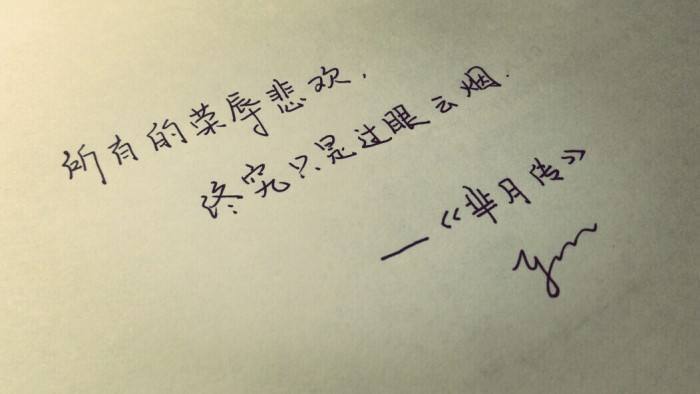 所有的荣辱悲欢，
终究只是过眼云烟.
—《芈月传》